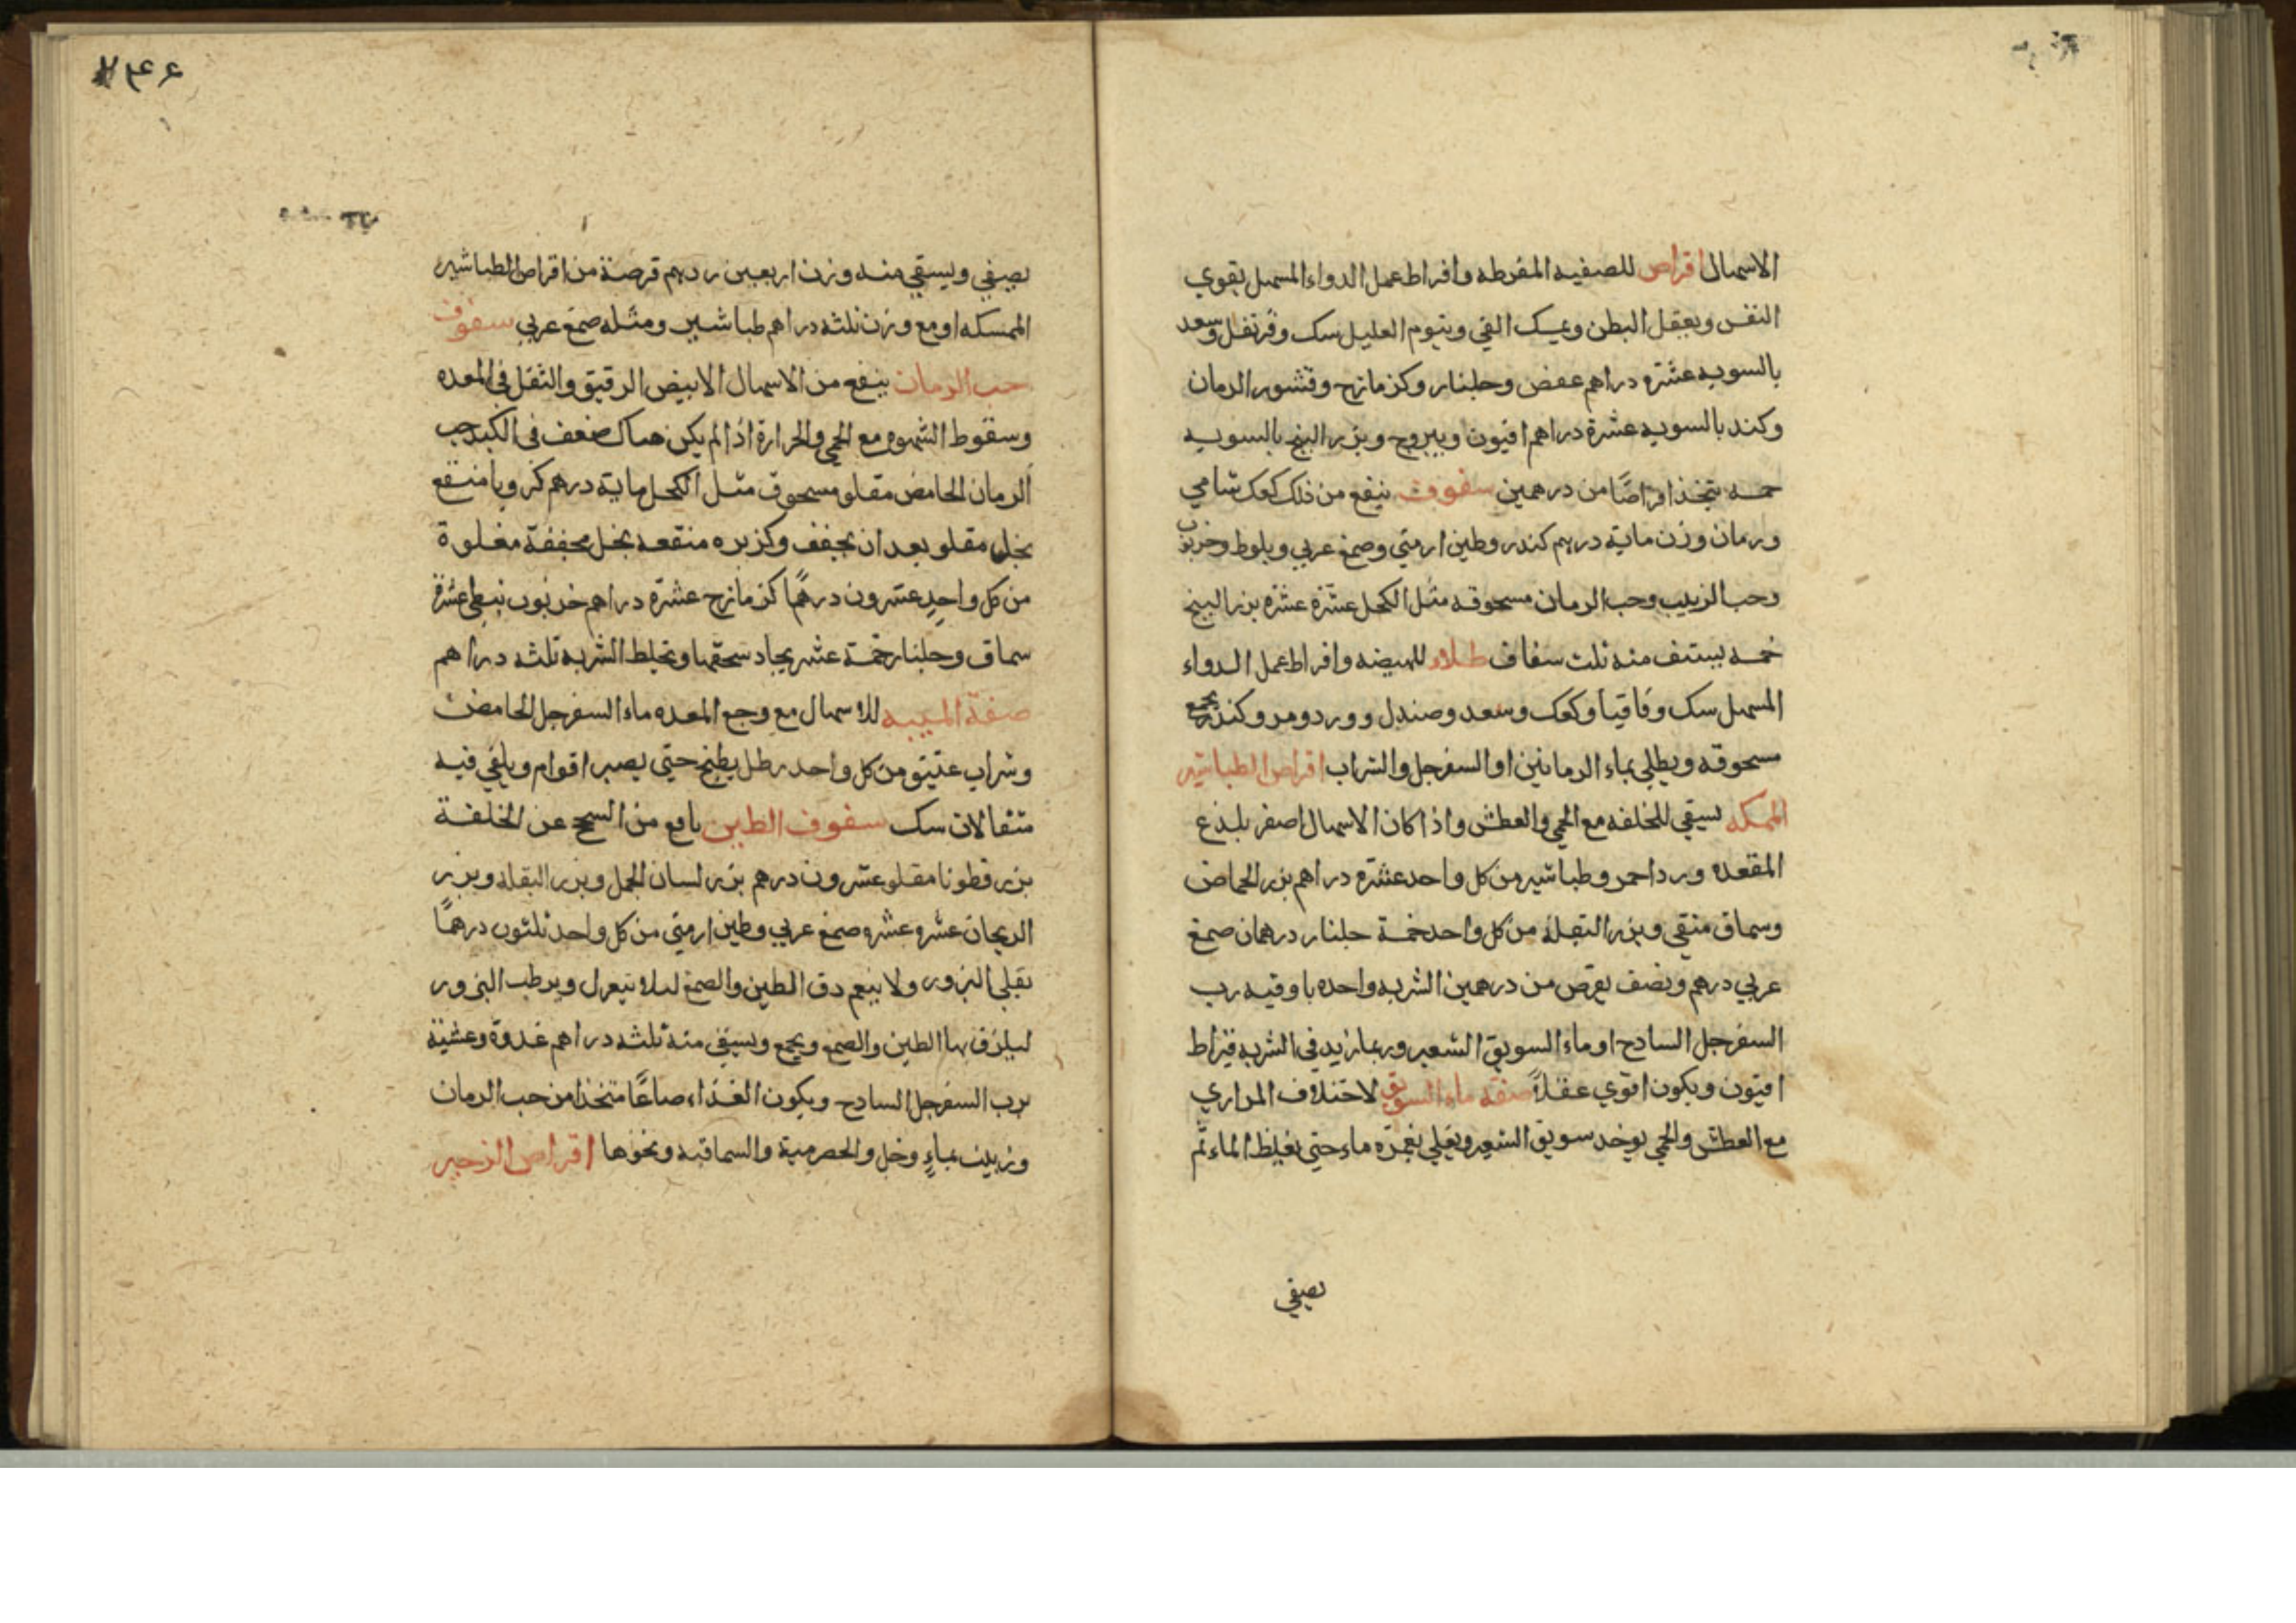 الاسهال اقراص للصفيه المفرطه وافراط عمل الدواء المسهل يقوي
النفس ويعقل البطن ويمسك القي وينوم العليل سك وقرنفل وسعد
بالسويه عشره دراهم عفص وجلنار وكزمازج وقشور الرمان
وكندر بالسويه عشرة دراهم افيون ويبروج وبزر البنج بالسويه
خمسه يتخذ اقراصًا من درهمين سفوف ينفع من ذلك كعك شامي
ورمان وزن ماية درهم كندر وطين ارمني وصمغ عربي وبلوط وخرنوب
وحب الزبيب وحب الرمان مسحوقه مثل الكحل عشرة عشره بزر البنج
خمسه يستف منه ثلث سفاف طلاء للهيضه وافراط عمل الدواء
المسهل سك وقاقيا وكعك وسعد وصندل وورد ومر وكندر يجمع
مسحوقه ويطلي بماء الرمانين او السفرجل والشراب اقراص الطباشير
الممسكه يسقي للخلفه مع الحمي والعطش واذا كان الاسهال اصفر يلذع
المقعده ورد احمر وطباشير من كل واحد عشرة دراهم بزر الحماض
وسماق منقي وبزر البقلة من كل واحد خمسة جلنار درهمان صمغ
عربي درهم ونصف يقرص من درهمين الشربه واحده باوقيه رب
السفرجل الساذج او ماء السويق الشعير وربما زيد في الشربه قيراط
افيون ويكون اقوي عقلاً صفة ماء السويق لاختلاف المراري
مع العطش والحمي يوخذ سويق الشعير ويغلي بغمره ماء حتى يغلظ الماء ثم
يصفي
۲۴۶
يصفي ويسقي منه وزن اربعين درهم قرصة من اقراص الطباشير
الممسكه او مع وزن ثلثه دراهم طباشير ومثله صمغ عربي سفوف
حب الرمان ينفع من الاسهال الابيض الرقيق والثقل في المعده
وسقوط الشهوه مع الحمي والحرارة اذا لم يكن هناك ضعف في الكبد حب
الرمان الحامض مقلو مسحوق مثل الكحل ماية درهم كرويا منقع
بخل مقلو بعد ان يجفف وكزبره منقعه بخل مجففة مغلوة
من كل واحد عشرون درهمًا كزمازج عشرة دراهم خرنوب نبطي عشرة
سماق وجلنار خمسة عشر يجاد سحقها ويخلط الشربه ثلثه دراهم
صفة الميبه للاسهال مع وجع المعده ماء السفرجل الحامض
وشراب عتيق من كل واحد رطل يطبخ حتي يصير اقوام ويلقي فيه
مثقالان سك سفوف الطين نافع من السحج عن الخلفة
بزر قطونا مقلو عشرون درهم بزر لسان الحمل وبزر البقله وبزر
الريحان عشره عشره صمغ عربي وطين ارمني من كل واحد ثلثون درهمًا
يقلي البزور ولا ينعم دق الطين والصمغ ليلا ينعزل ويرطب البزور
ليلزق بها الطين والصمغ ويجمع ويسقي منه ثلثه دراهم غدوة وعشية
برب السفرجل الساذج ويكون الغذاء صباغًا متخذا من حب الرمان
وزبيب بماءٍ وخل والحصرمية والسماقيه ونحوها اقراص الزحير